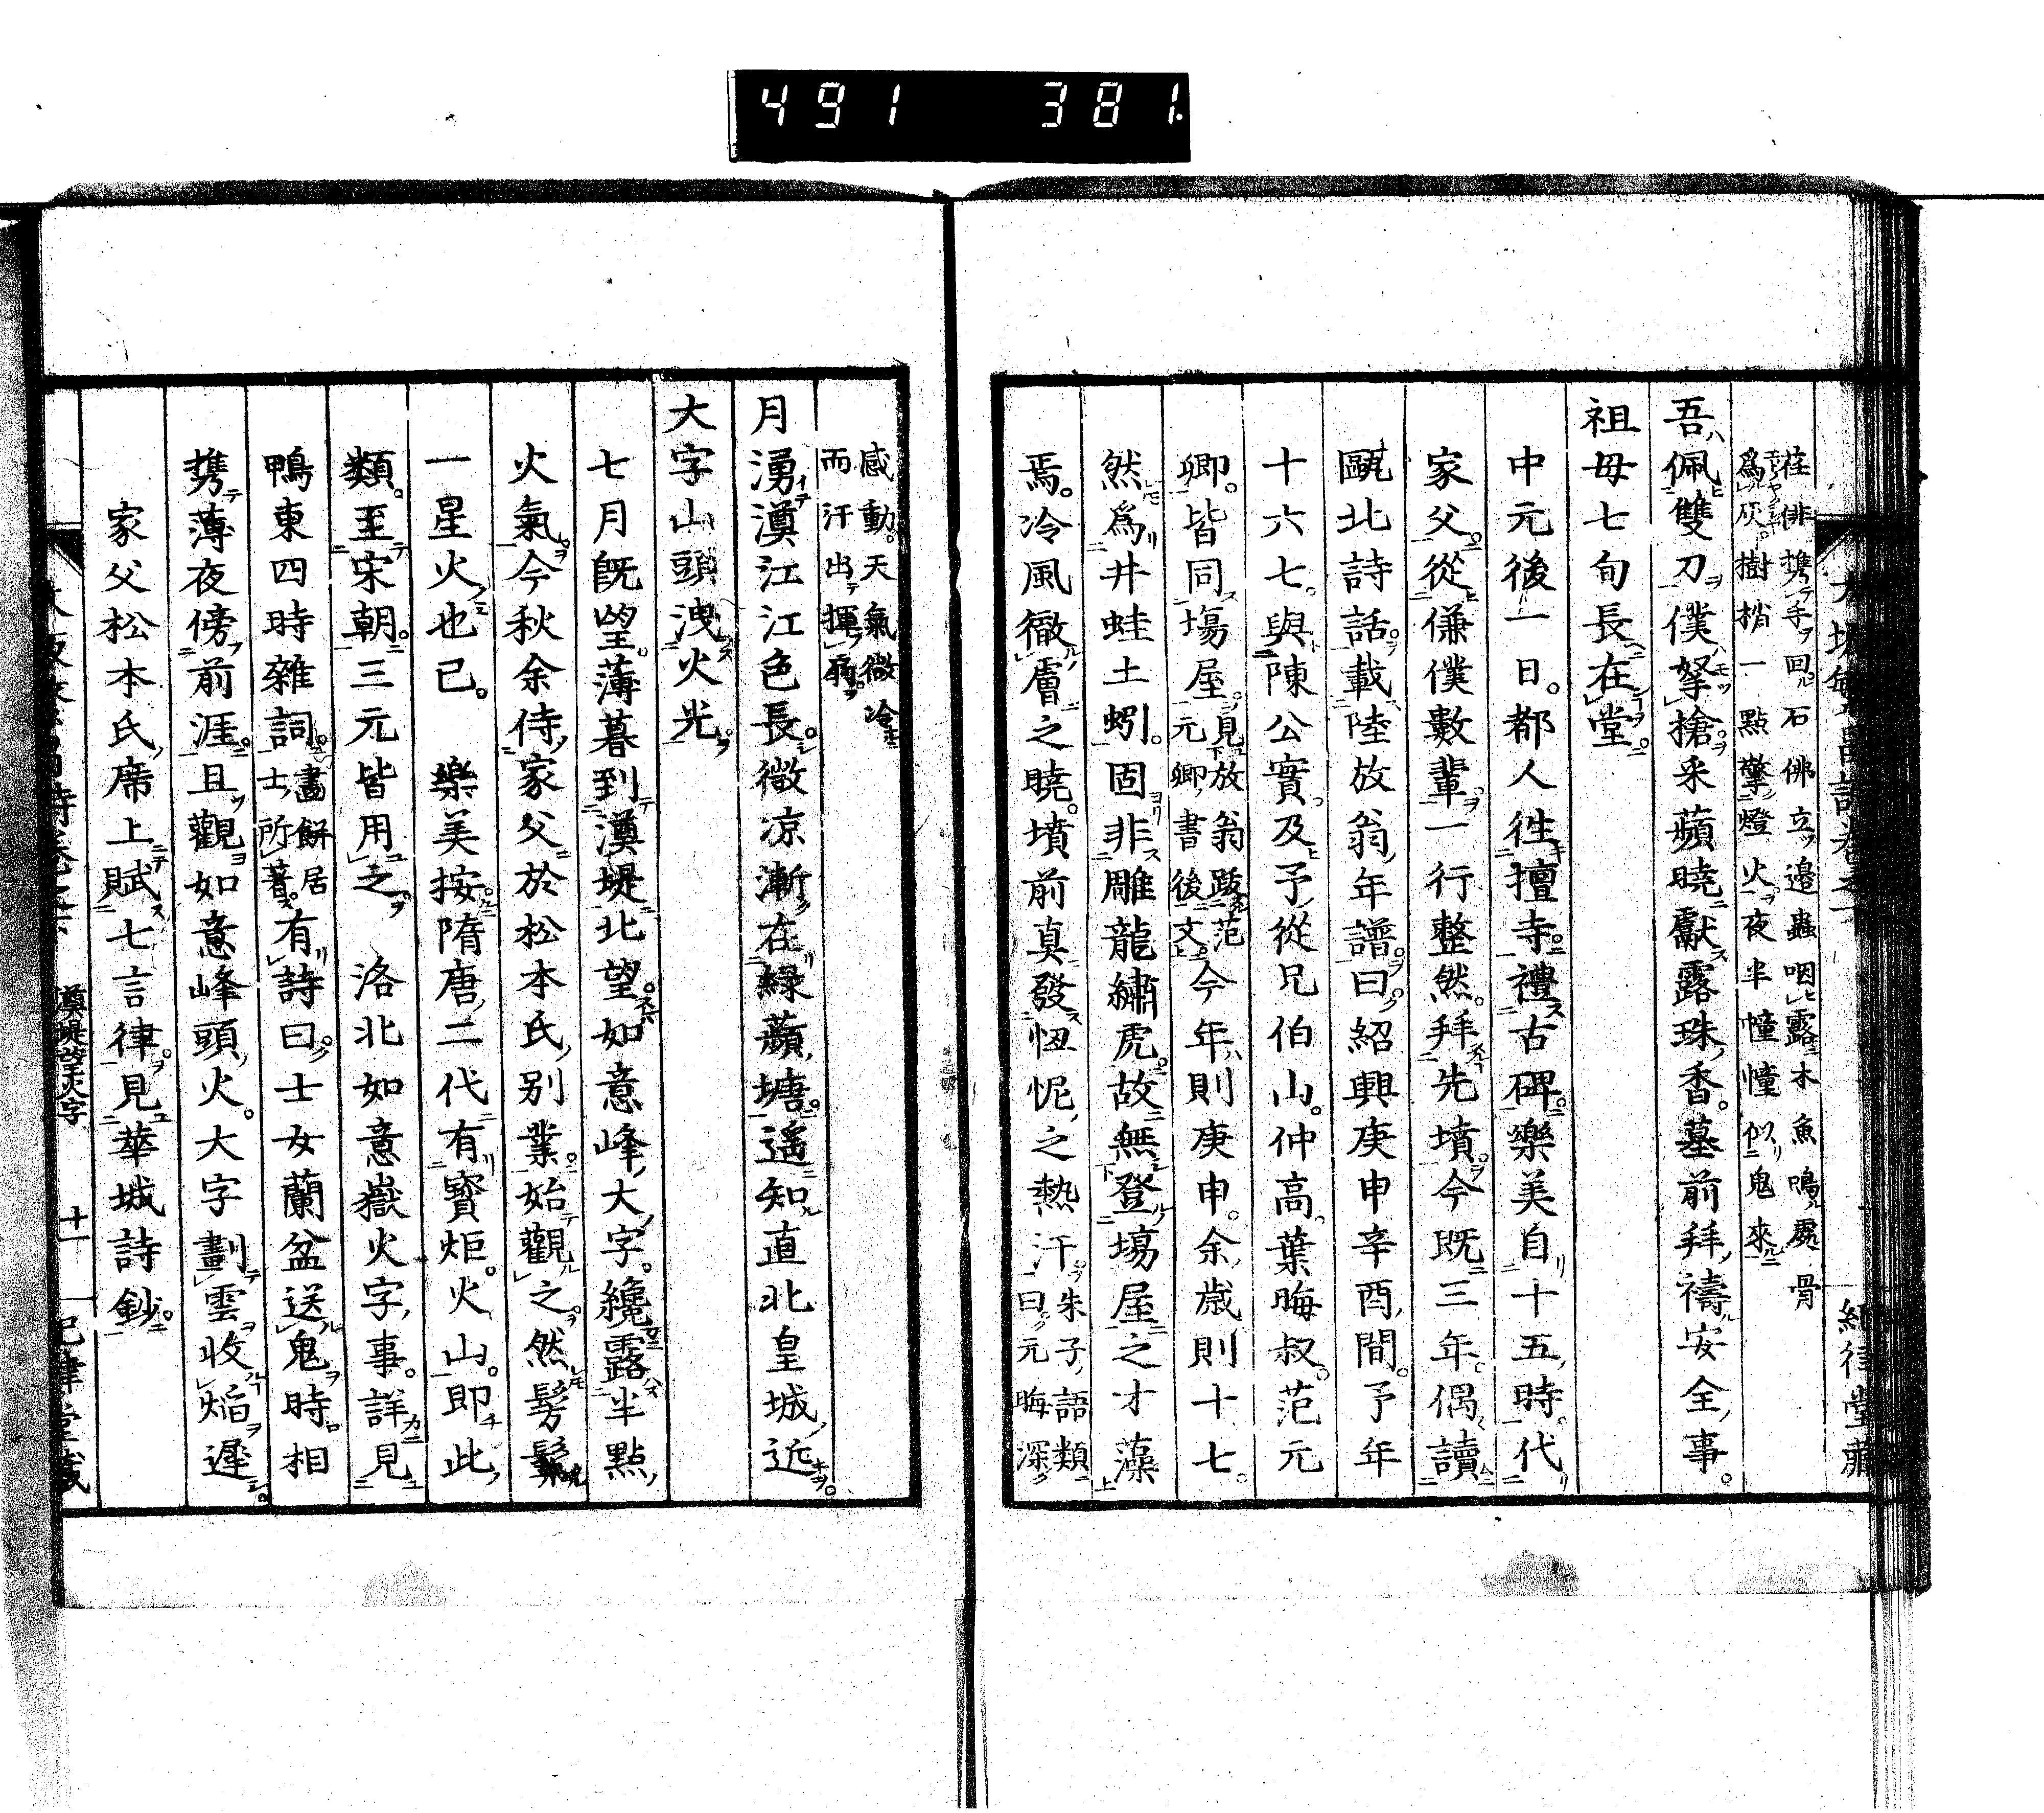 491 381
荏俳携手回石佛立邉蟲咽露木魚鳴處骨
爲灰樹梢一點擎燈火夜半幢幢似鬼來
吾佩雙刀僕拏搶采蘋曉獻露珠香墓前拜禱安全事
祖母七旬長在堂
中元後一日都人徃擅寺禮古碑樂美自十五時代
家父從傔僕數輩一行整然拜先墳今既三年偶讀
甌北詩話載陸放翁年譜曰紹興庚申辛酉間予年
十六七與陳公實及予從兄伯山仲高葉晦叔范元
卿皆同塲屋見放翁跋范元卿書後文今年則庚申余歲則十七
然爲井蛙土蚓固非雕龍繡虎故無登塲屋之才藻
焉冷風徹膚之曉墳前真發忸怩之熱汗朱子語類曰元晦深
感動天氣微冷
而汗出揮扇
月湧澱江江色長微凉漸在緑蘋塘遥知直北皇城近
大字山頭洩火光
七月既望薄暮到澱堤北望如意峰大字纔露半點
火氣今秋余侍家父於松本氏別業始觀之然髣髴
一星火也已 樂美按隋唐二代有寳炬火山即此
類至宋朝三元皆用之 洛北如意嶽火字事詳見
鴨東四時雜詞畫餅居士所著有詩曰士女蘭盆送鬼時相
携薄夜傍前涯且觀如意峰頭火大字劃雲收焔遲
家父松本氏席上賦七言律見華城詩鈔
澱堤望火字 十一